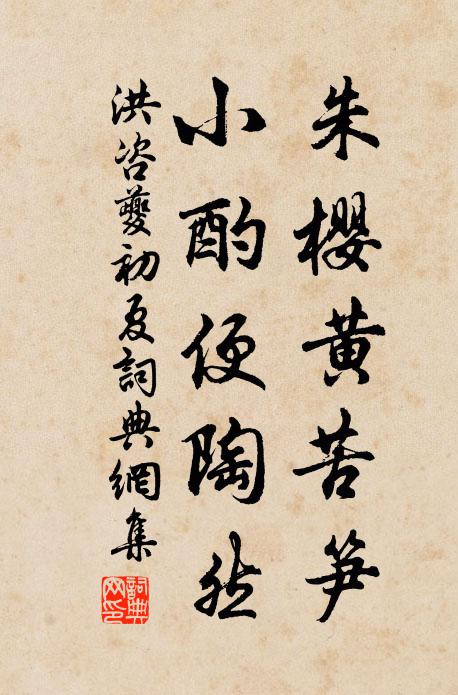 朱櫻黃苦笋
小酌便陶然
洪咨夔初夏詞典網集
詞典網印